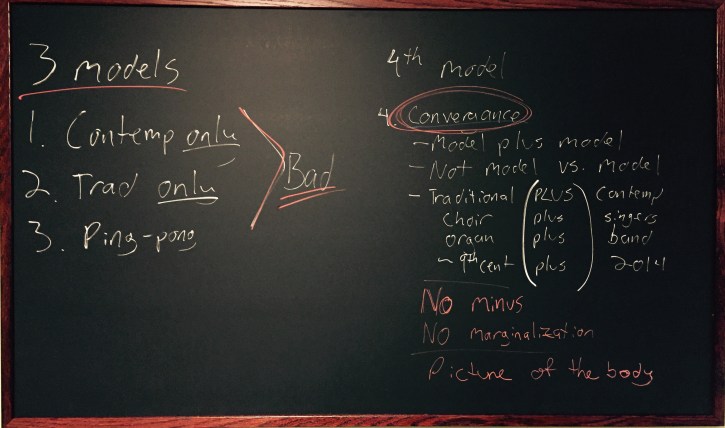 3 models
1. Contemp only
2. Trad only
3. Ping-pong
Bad
4th model
4. Convergance
- Model plus model
- Not model vs. model
- Traditional (PLUS) Contemp
choir plus singers
organ plus band
~ 9th cent plus 2014
No minus
No marginalization
Picture of the body